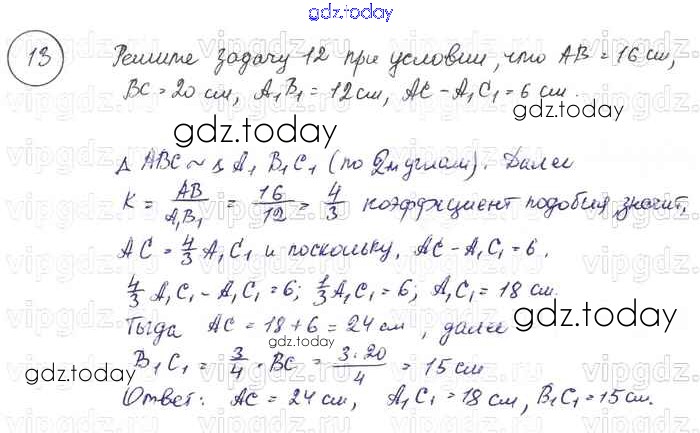 gdz.today
13 Решите задачу 12 при условии, что AB = 16 см,
BC = 20 см, A₁B₁ = 12 см, AC - A₁C₁ = 6 см.
gdz.today gdz.today
Δ ABC ~ Δ A₁ B₁C₁ (по 2м углам). Далее
K = AB/A₁B₁ = 16/12 = 4/3 коэффициент подобия, значит,
AC = 4/3 A₁C₁ и поскольку, AC - A₁C₁ = 6,
gdz.today gdz.today
4/3 A₁C₁ - A₁C₁ = 6; 1/3 A₁C₁ = 6; A₁C₁ = 18 см.
Тогда AC = 18 + 6 = 24 см, далее
gdz.today
B₁C₁ = 3/4 · BC = 3·20/4 = 15 см
gdz.today gdz.today
Ответ: AC = 24 см, A₁C₁ = 18 см, B₁C₁ = 15 см.
gdz.today